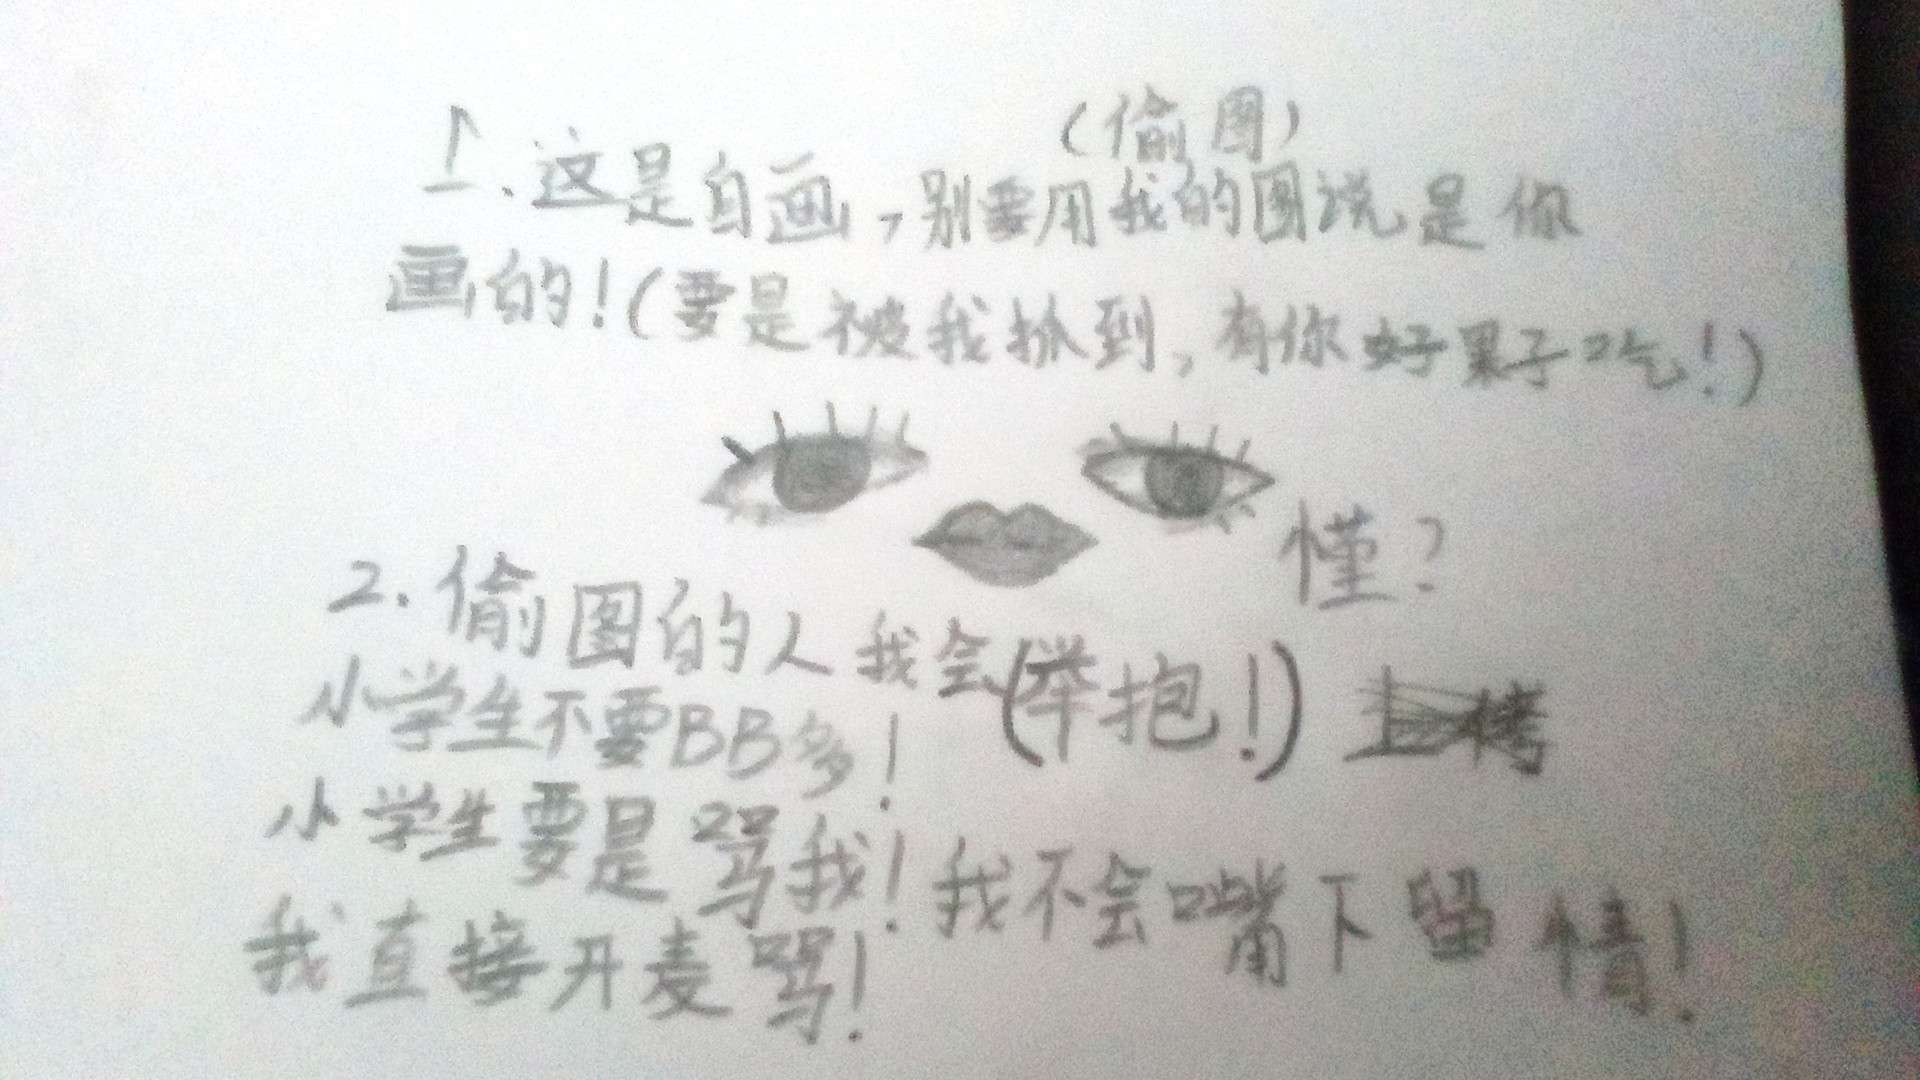 (偷图)
1.这是自画,别要用我的图说是你
画的!(要是被我抓到,有你好果子吃!)
懂?
2.偷图的人我会(举抱!)
小学生不要BB多!
小学生要是骂我!我不会嘴下留情!
我直接开麦骂!